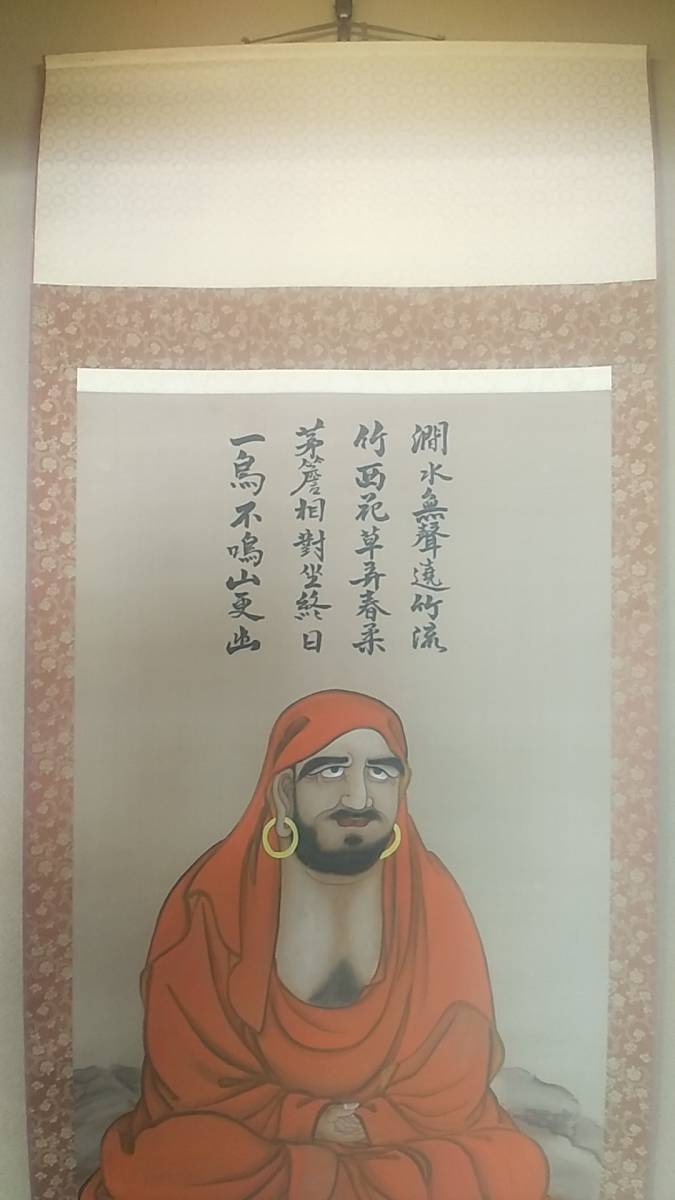 澗水無聲遶竹流
竹西花草弄春柔
茅簷相對坐終日
一鳥不鳴山更幽